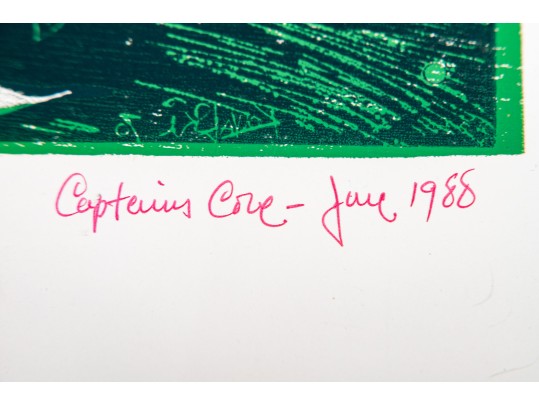 Captains Cove - June 1988